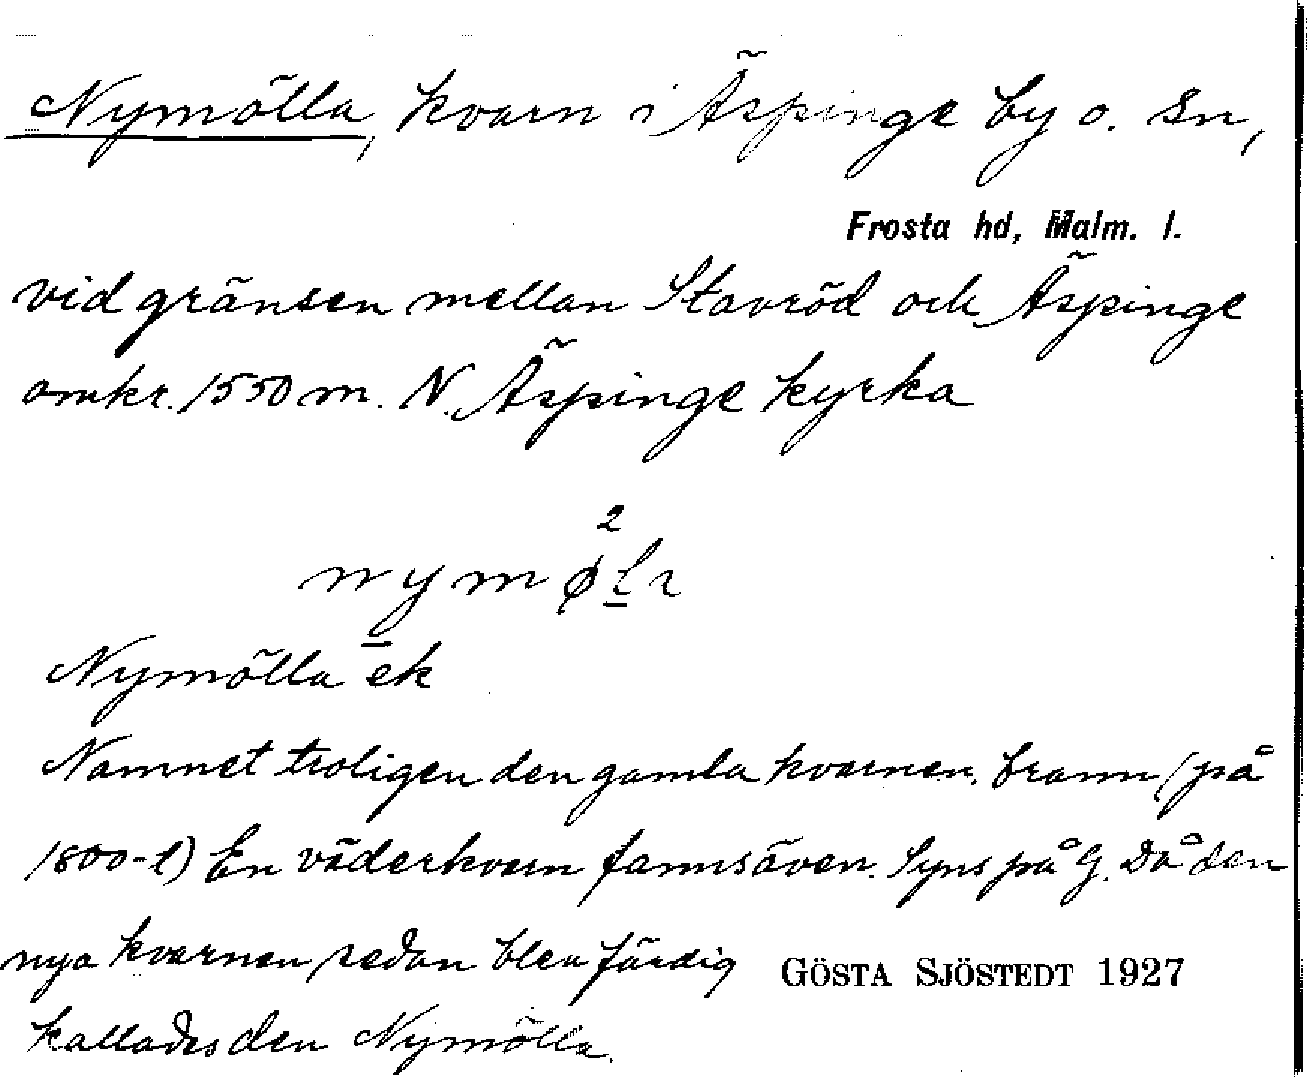 Nymölla, kvarn i Äspinge by o. sn,
Frosta hd, Malm. l.
vid gränsen mellan Stavröd och Äspinge
omkr. 1550 m. N. Äspinge kyrka
2
nymøla
Nymölla ek
Namnet troligen den gamla kvarnen. brann (på
1800-t) En väderkvarn fanns även. Syns på G. Då den
nya kvarnen sedan blev färdig
GÖSTA SJÖSTEDT 1927
kallades den Nymölla.